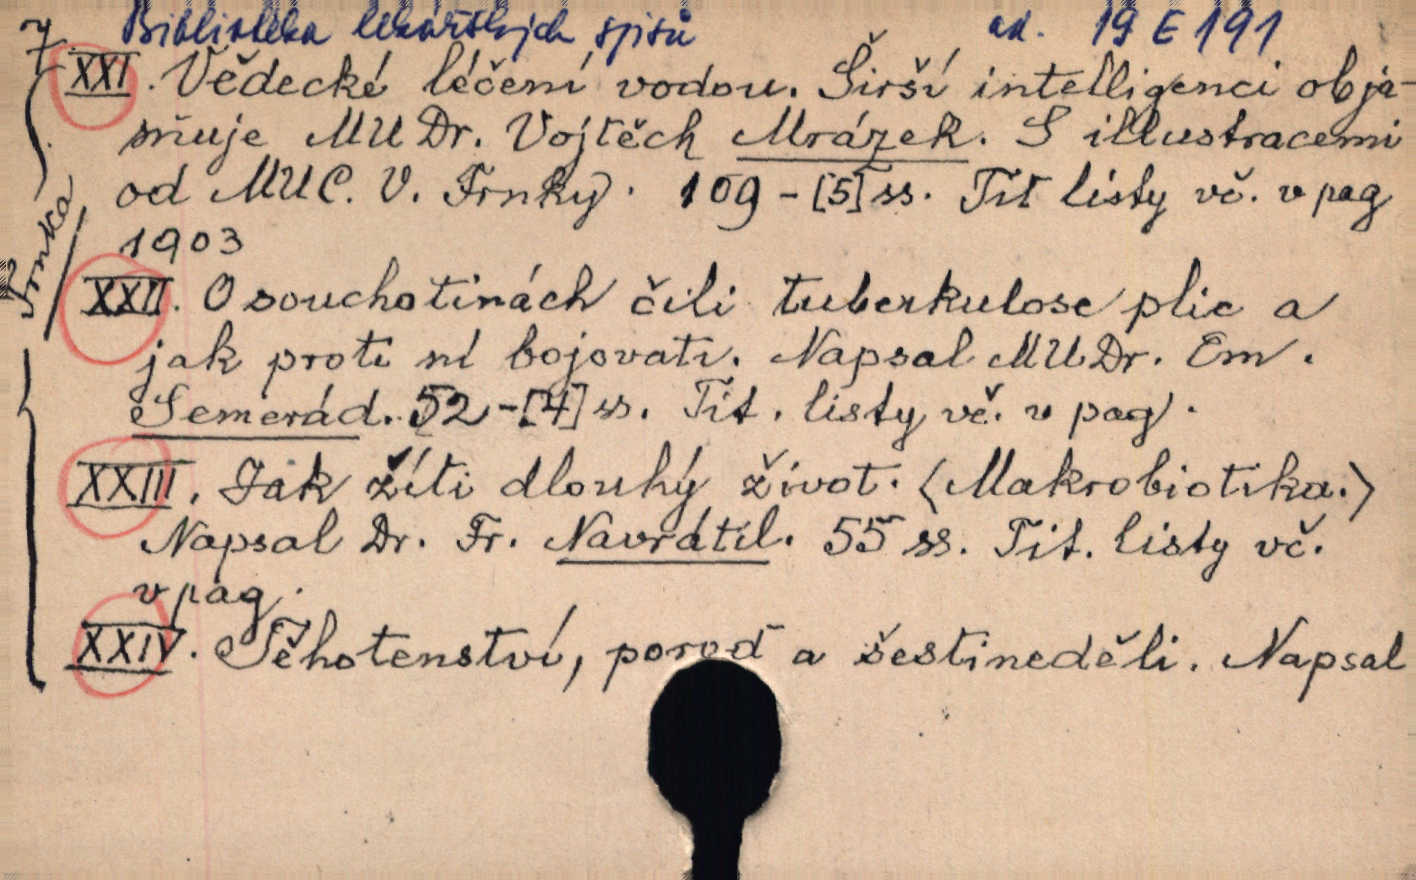 7
Bibliotéka lékařských spisů ad. 19 E 191
XXI. Vědecké léčení vodou. Širší intelligenci objá-
sňuje MUDr. Vojtěch Mrázek. S illustracemi
od MUC. V. Trnky. 109-[5] ss. Tit listy vč. v pag
1903
Trnka
XXII. O souchotinách čili tuberkulose plic a
jak proti ní bojovati. Napsal MUDr. Em.
Semerád. 52-[4] ss. Tit. listy vč. v pag.
XXIII. Jak žíti dlouhý život. (Makrobiotika.)
Napsal Dr. Fr. Navrátil. 55 ss. Tit. listy vč.
v pag.
XXIV. Těhotenství, porod a šestineděli. Napsal